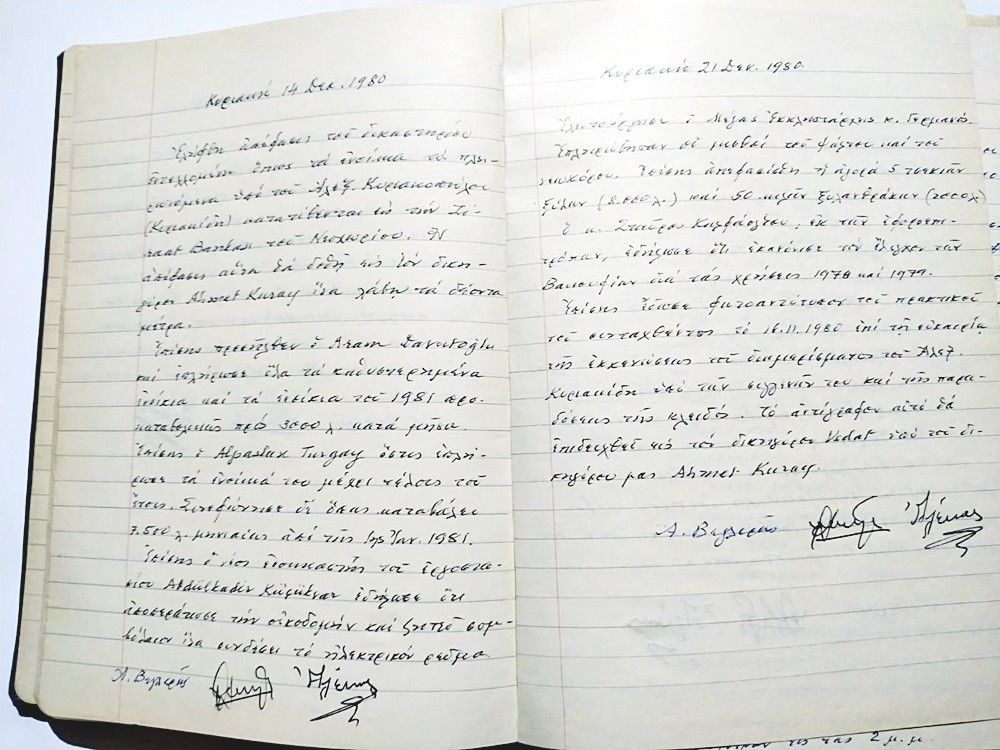 Κυριακή 14 Δεκ. 1980
Ἐλήφθη ἀπόφασις τοῦ δικαστηρίου
ἐντελλομένη ὅπως τὰ ἐνοίκια τὰ πλη-
ρωνόμενα ὑπό τοῦ Ἀλεξ. Κυριακοπούλου
(Κυριακίδη) κατατίθενται εἰς τήν Zi-
raat Bankası τοῦ Νεοχωρίου. Ἡ
ἀπόφασις αὕτη θά δοθῇ εἰς τόν δικη-
γόρον Ahmet Kuray ἵνα λάβῃ τά δέοντα
μέτρα.
Ἐπίσης προσῆλθεν ὁ Aram Davutoğlu
καί ἐπλήρωσε ὅλα τά καθυστερημένα
ἐνοίκια καί τά ἐνοίκια τοῦ 1981 προ-
καταβολικῶς πρός 3000 λ. κατά μῆνα.
Ἐπίσης ὁ Alpaslan Turgay ὅστις ἐπλή-
ρωσε τά ἐνοίκιά του μέχρι τέλους τοῦ
ἔτους. Συνεφώνησε δέ ὅπως καταβάλει
7.500 λ. μηνιαίως ἀπό τῆς 1ης Ἰαν. 1981.
Ἐπίσης ὁ νέος ἐνοικιαστής τοῦ ἐργοστα-
σίου Abdülkadir Küçükvar ἐδήλωσε ὅτι
ἀποπεράτωσε τήν οἰκοδομήν καί ζητεῖ συμ-
βόλαιον ἵνα συνδέσει τό ἠλεκτρικόν ρεῦμα.
Α. Βεγλερῆς
Κυριακή 21 Δεκ. 1980.
Ἐλειτούργησε ὁ Μέγας Ἐκκλησιάρχης κ. Γερμανός.
Ἐπληρώθησαν οἱ μισθοί τοῦ ψάλτου καί τοῦ
νεωκόρου. Ἐπίσης ἀπεφασίσθη ἡ ἀγορά 5 τσεκίων
ξύλων (8.000 λ.) καί 50 κιλῶν ξυλανθράκων (2000 λ)
Ὁ κ. Σταῦρος Καλφάογλου, ἐκ τῶν ἐφοροεπι-
τρόπων, ἐδήλωσε ὅτι ἐκανόνισε τόν ἔλεγχον τῶν
Βακουφίων διά τάς χρήσεις 1978 καί 1979.
Ἐπίσης ἔδωσε φωτοαντίτυπον τοῦ πρακτικοῦ
τοῦ συνταχθέντος τό 16.11.1980 ἐπί τῇ εὐκαιρίᾳ
τῆς ἐκκενώσεως τοῦ διαμερίσματος τοῦ Ἀλεξ.
Κυριακίδη ὑπό τῶν συγγενῶν του καί τῆς παρα-
δόσεως τῆς κλειδός. Τό ἀντίγραφον αὐτό θά
ἐπιδειχθεῖ εἰς τόν δικηγόρον Vedat ὑπό τοῦ δι-
κηγόρου μας Ahmet Kuray.
Α. Βεγλερῆς
εἰς τάς 2 μ.μ.